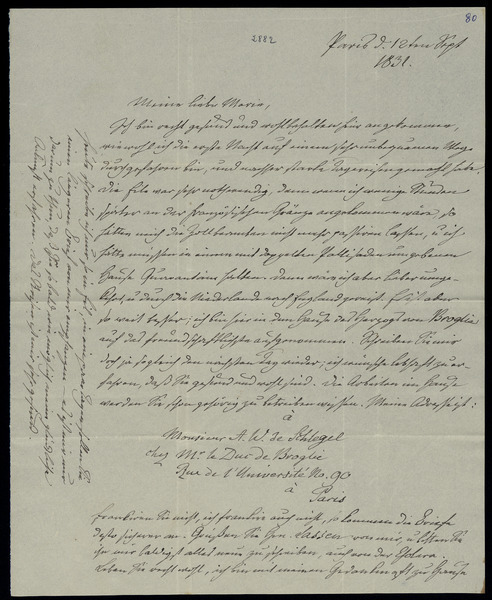 80
2882
Paris d. 12ten Sept
1831.
Meine liebe Marie,
Ich bin recht gesund und wohlbehalten hier angekommen,
wiewohl ich die erste Nacht auf einem sehr unbequemen Weg
durchgefahren bin, und nachher starke Tagereisen gemacht habe.
Die Eile war sehr nothwendig, denn wenn ich wenige Stunden
später an der französischen Gränze angekommen wäre, so
hätten mich die Zollbeamten nicht mehr passiren lassen, u ich
hätte müssen in einem mit doppelten Pallisaden umgebenen
Hause Quarantäne halten. Dann wäre ich aber lieber umge-
kehrt, u durch die Niederlande nach England gereist. Es ist aber
so weit besser; ich bin hier in dem Hause des Herzogs von Broglie
auf das freundschaftlichste aufgenommen. Schreiben Sie mir
doch ja sogleich den nächsten Tag wieder, ich wünsche lebhaft zu er-
fahren, daß Sie gesund und wohl sind. Die Arbeiten im Hause
werden Sie schon gehörig zu betreiben wissen. Meine Adresse ist:
à
Monsieur A. W. de Schlegel
chez Mr. le Duc de Broglie
Rue de l'Université No. 90
à
Paris
Frankiren Sie nicht, ich frankire auch nicht, so kommen die Briefe
desto sicherer an. Grüßen Sie Hrn. Lassen von mir, u bitten Sie
ihn mir baldigst alles neue zu schreiben, auch von der Cholera.
Leben Sie recht wohl, ich bin mit meinen Gedanken oft zu Hause